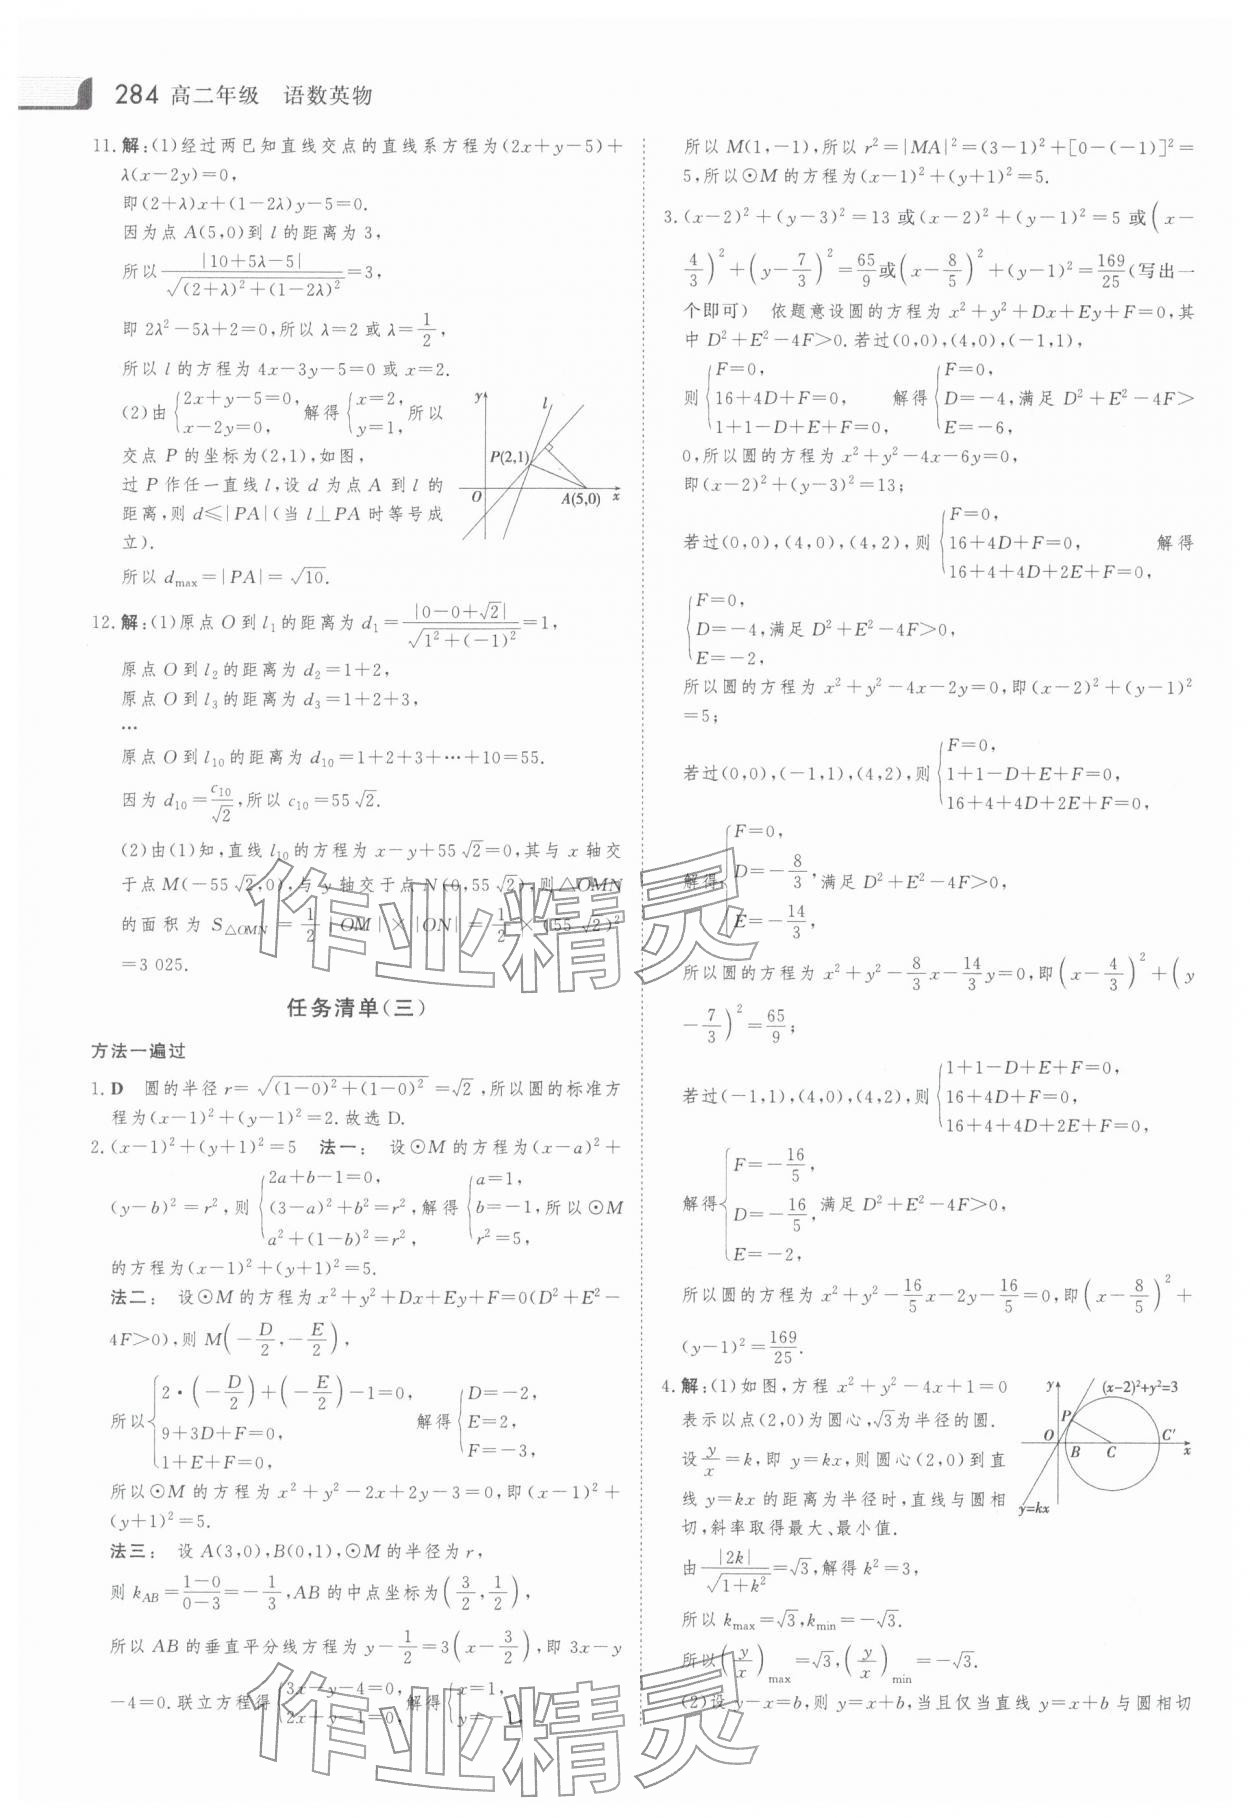 284 高二年级 语数英物
11.解:(1)经过两已知直线交点的直线系方程为(2x+y-5)+
λ(x-2y)=0,
即(2+λ)x+(1-2λ)y-5=0.
因为点A(5,0)到l的距离为3,
所以|10+5λ-5|/√((2+λ)²+(1-2λ)²)=3,
即2λ²-5λ+2=0,所以λ=2或λ=1/2,
所以l的方程为4x-3y-5=0或x=2.
(2)由{2x+y-5=0, x-2y=0, 解得{x=2, y=1, 所以
交点P的坐标为(2,1),如图,
过P作任一直线l,设d为点A到l的
距离,则d≤|PA|(当l⊥PA时等号成
立).
所以d_max=|PA|=√10.
y l P(2,1) O A(5,0) x
12.解:(1)原点O到l₁的距离为d₁=|0-0+√2|/√(1²+(-1)²)=1,
原点O到l₂的距离为d₂=1+2,
原点O到l₃的距离为d₃=1+2+3,
…
原点O到l₁₀的距离为d₁₀=1+2+3+…+10=55.
因为d₁₀=c₁₀/√2,所以c₁₀=55√2.
(2)由(1)知,直线l₁₀的方程为x-y+55√2=0,其与x轴交
于点M(-55√2,0),与y轴交于点N(0,55√2),则△OMN
的面积为S△OMN=1/2|OM|×|ON|=1/2×(55√2)²
=3 025.
任务清单(三)
方法一遍过
1.D 圆的半径r=√((1-0)²+(1-0)²)=√2,所以圆的标准方
程为(x-1)²+(y-1)²=2.故选D.
2.(x-1)²+(y+1)²=5 法一: 设⊙M的方程为(x-a)²+
(y-b)²=r²,则{2a+b-1=0, (3-a)²+b²=r², a²+(1-b)²=r², 解得{a=1, b=-1, r²=5, 所以⊙M
的方程为(x-1)²+(y+1)²=5.
法二: 设⊙M的方程为x²+y²+Dx+Ey+F=0(D²+E²-
4F>0),则M(-D/2,-E/2),
所以{2·(-D/2)+(-E/2)-1=0, 9+3D+F=0, 1+E+F=0, 解得{D=-2, E=2, F=-3,
所以⊙M的方程为x²+y²-2x+2y-3=0,即(x-1)²+
(y+1)²=5.
法三: 设A(3,0),B(0,1),⊙M的半径为r,
则k_AB=(1-0)/(0-3)=-1/3,AB的中点坐标为(3/2,1/2),
所以AB的垂直平分线方程为y-1/2=3(x-3/2),即3x-y
-4=0.联立方程得{3x-y-4=0, 2x+y-1=0, 解得{x=1, y=-1.
所以M(1,-1),所以r²=|MA|²=(3-1)²+[0-(-1)]²=
5,所以⊙M的方程为(x-1)²+(y+1)²=5.
3.(x-2)²+(y-3)²=13或(x-2)²+(y-1)²=5或(x-
4/3)²+(y-7/3)²=65/9或(x-8/5)²+(y-1)²=169/25(写出一
个即可) 依题意设圆的方程为x²+y²+Dx+Ey+F=0,其
中D²+E²-4F>0.若过(0,0),(4,0),(-1,1),
则{F=0, 16+4D+F=0, 1+1-D+E+F=0, 解得{F=0, D=-4, E=-6, 满足D²+E²-4F>
0,所以圆的方程为x²+y²-4x-6y=0,
即(x-2)²+(y-3)²=13;
若过(0,0),(4,0),(4,2),则{F=0, 16+4D+F=0, 16+4+4D+2E+F=0, 解得
{F=0, D=-4, E=-2, 满足D²+E²-4F>0,
所以圆的方程为x²+y²-4x-2y=0,即(x-2)²+(y-1)²
=5;
若过(0,0),(-1,1),(4,2),则{F=0, 1+1-D+E+F=0, 16+4+4D+2E+F=0,
解得{F=0, D=-8/3, E=-14/3, 满足D²+E²-4F>0,
所以圆的方程为x²+y²-8/3x-14/3y=0,即(x-4/3)²+(y
-7/3)²=65/9;
若过(-1,1),(4,0),(4,2),则{1+1-D+E+F=0, 16+4D+F=0, 16+4+4D+2E+F=0,
解得{F=-16/5, D=-16/5, E=-2, 满足D²+E²-4F>0,
所以圆的方程为x²+y²-16/5x-2y-16/5=0,即(x-8/5)²+
(y-1)²=169/25.
4.解:(1)如图,方程x²+y²-4x+1=0
表示以点(2,0)为圆心,√3为半径的圆.
设y/x=k,即y=kx,则圆心(2,0)到直
线y=kx的距离为半径时,直线与圆相
切,斜率取得最大、最小值.
y (x-2)²+y²=3 P O B C C' x y=kx
由|2k|/√(1+k²)=√3,解得k²=3,
所以k_max=√3,k_min=-√3.
所以(y/x)_max=√3,(y/x)_min=-√3.
(2)设y-x=b,则y=x+b,当且仅当直线y=x+b与圆相切
作业精灵
作业精灵